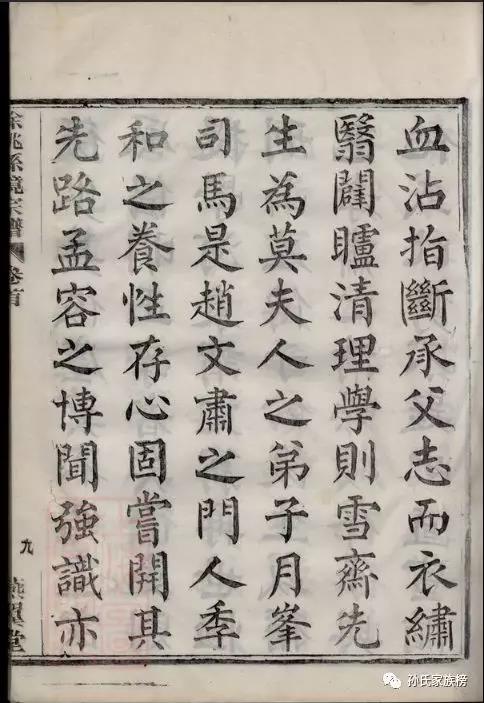 血沾指斷承父志而衣繡
翳闢矑清理學則雪齋先
生為莫夫人之弟子月峯
司馬是趙文肅之門人季
和之養性存心固嘗開其
先路孟容之博聞強識亦
餘姚孫境宗譜
卷首
九
燕翼堂
孙氏家族榜